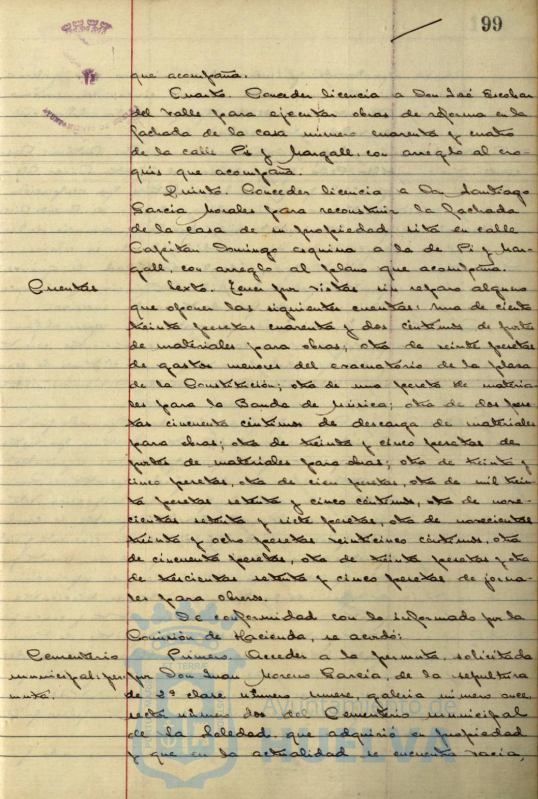 99
que acompaña.
Cuarto. Conceder licencia a Don José Escobar
del Valle para ejecutar obras de reforma en la
fachada de la casa número cuarenta y cuatro
de la calle Pí y Margall, con arreglo al cro-
quis que acompaña.
Quinto. Conceder licencia a Don Santiago
García Morales para reconstruir la fachada
de la casa de su propiedad sita en calle
Capitán Domingo esquina a la de Pí y Mar-
gall, con arreglo al plano que acompaña.
Cuentas
Sexto. Tener por vistas sin reparo alguno
que oponer las siguientes cuentas: una de ciento
treinta pesetas cuarenta y dos céntimos de portes
de materiales para obras; otra de veinte pesetas
de gastos menores del evacuatorio de la plaza
de la Constitución; otra de una peseta de materia-
les para la Banda de Música; otra de dos pese-
tas cincuenta céntimos de descarga de materiales
para obras; otra de treinta y cinco pesetas de
portes de materiales para obras; otra de treinta y
cinco pesetas, otra de cien pesetas, otra de mil trein-
ta pesetas setenta y cinco céntimos, otra de nove-
cientas setenta y siete pesetas, otra de novecientas
treinta y ocho pesetas veinticinco céntimos, otra
de cincuenta pesetas, otra de treinta pesetas y otra
de trescientas setenta y cinco pesetas de jorna-
les para obreros.
De conformidad con lo informado por la
Comisión de Hacienda, se acordó:
Cementerio
municipal: per-
muta.
Primero. Acceder a la permuta, solicitada
por Don Juan Moreno García, de la sepultura
de 2ª clase número nueve, galería número once
sector número dos del Cementerio municipal
de la Soledad, que adquirió en propiedad
y que en la actualidad se encuentra vacía,
Ayuntamiento de
HUELVA